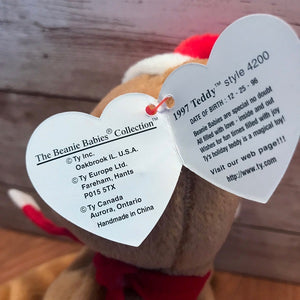 The Beanie Babies® Collection™
©Ty Inc.
Oakbrook IL. U.S.A.
©Ty Europe Ltd.
Fareham, Hants
PO15 5TX
©Ty Canada
Aurora, Ontario
Handmade in China
1997 Teddy™ style 4200
DATE OF BIRTH : 12 - 25 - 96
Beanie Babies are special no doubt
All filled with love - inside and out
Wishes for fun times filled with joy
Ty's holiday teddy is a magical toy!
Visit our web page!!!
http://www.ty.com